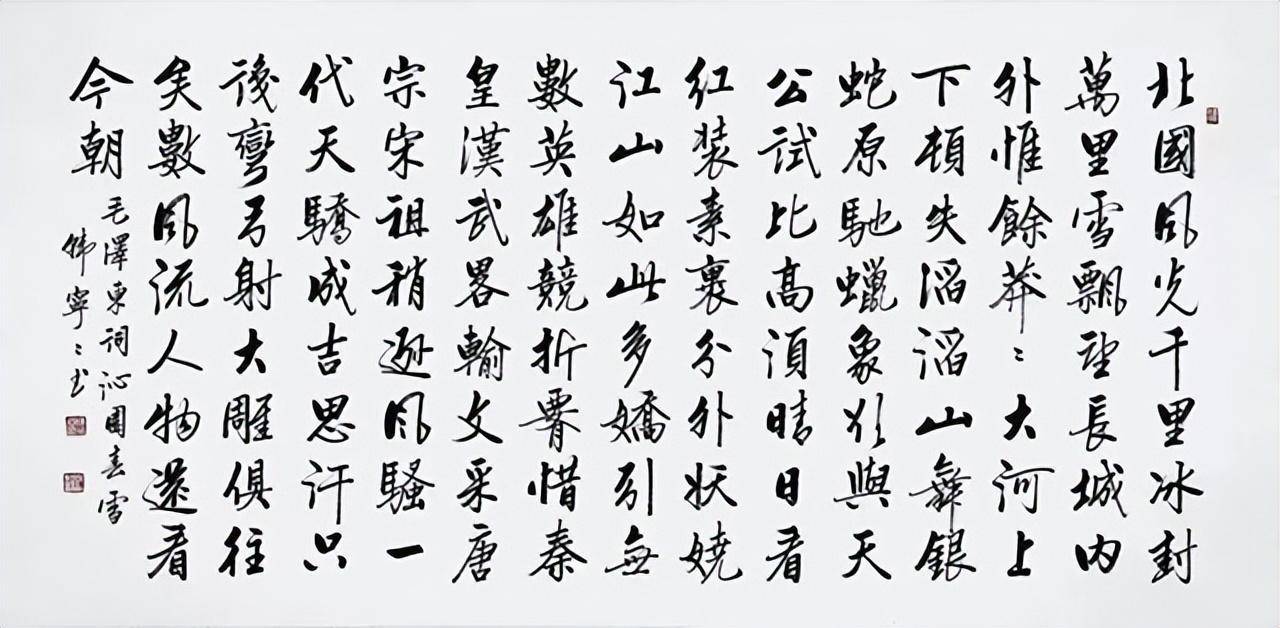 北國風光千里冰封
萬里雪飄望長城内
外惟餘莽〻大河上
下頓失滔滔山舞銀
蛇原馳蠟象欲與天
公試比高須晴日看
红装素裹分外妖嬈
江山如此多嬌引無
數英雄競折腰惜秦
皇漢武畧輸文采唐
宗宋祖稍遜風騷一
代天驕成吉思汗只
識彎弓射大雕俱往
矣數風流人物還看
今朝
毛澤東詞沁園春雪
韩寧〻书